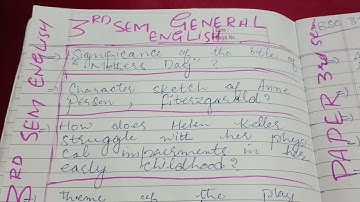 3RD SEM GENERAL
ENGLISH
Significance of the title of
"Mothers Day"?
Character sketch of Anne
Person, Fiterzgurald?
How does Helen Keller
struggle with her physi-
cal impairments in her
early childhood?
theme of the play
3RD SEM ENGLISH
BSC 3
PAPER 3rd sem